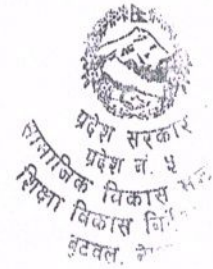 प्रदेश सरकार
प्रदेश नं. ५
सामाजिक विकास
शिक्षा विकास
बुटवल,